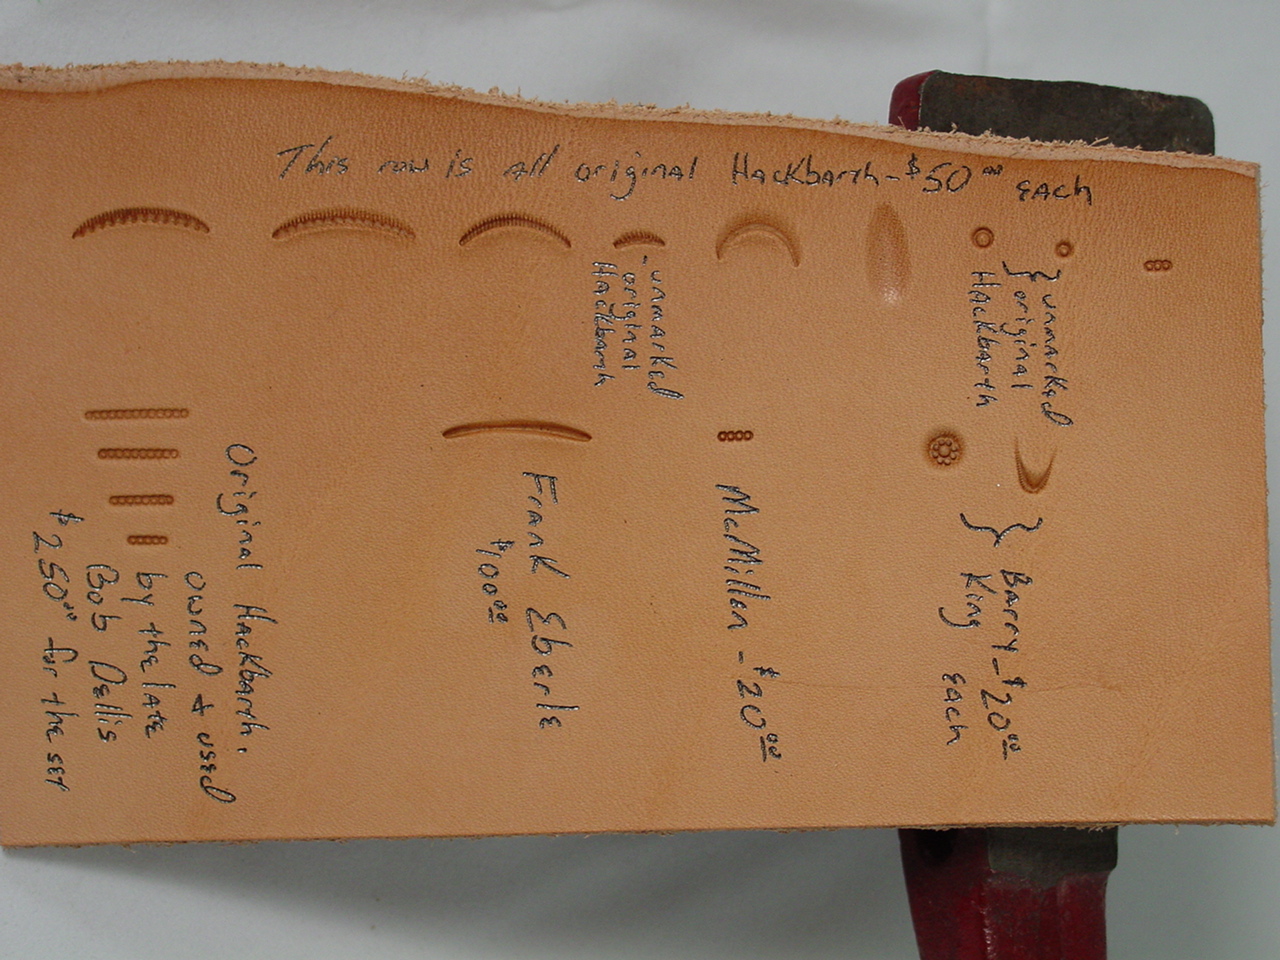 This row is all original Hackbarth - $50.00 each
- unmarked
original
Hackbarth
} unmarked
original
Hackbarth
Original Hackbarth.
owned & used
by the late
Bob Dellis
$250.00 for the set
Frank Eberle
$100.00
McMillen - $20.00
} Barry - $20.00
King each